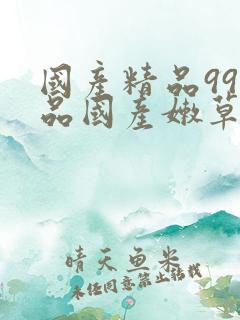 國產精品99
品國產嫩草
晴天鱼米
未经同意禁止转载